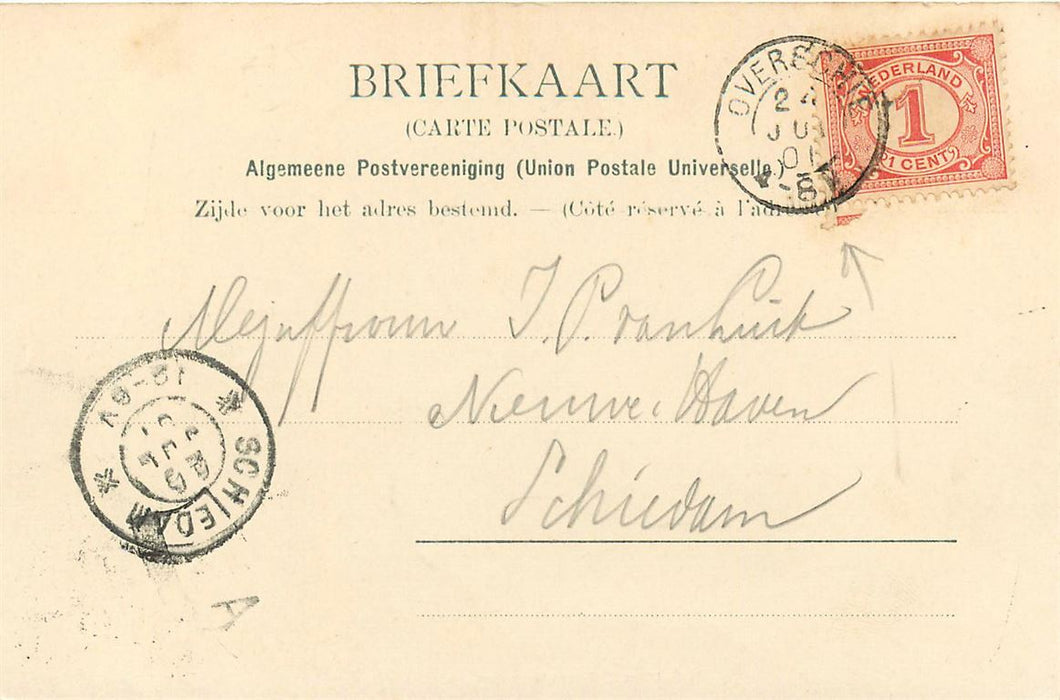 BRIEFKAART
(CARTE POSTALE.)
Algemeene Postvereeniging (Union Postale Universelle)
Zijde voor het adres bestemd. — (Côté réservé à l'adre
OVERSCHIE
2
JU
01
-8V
NEDERLAND
1
1 CENT
Mejuffrouw J. P. van Luik
Nieuwe Haven
Schiedam
SCHIEDAM
A